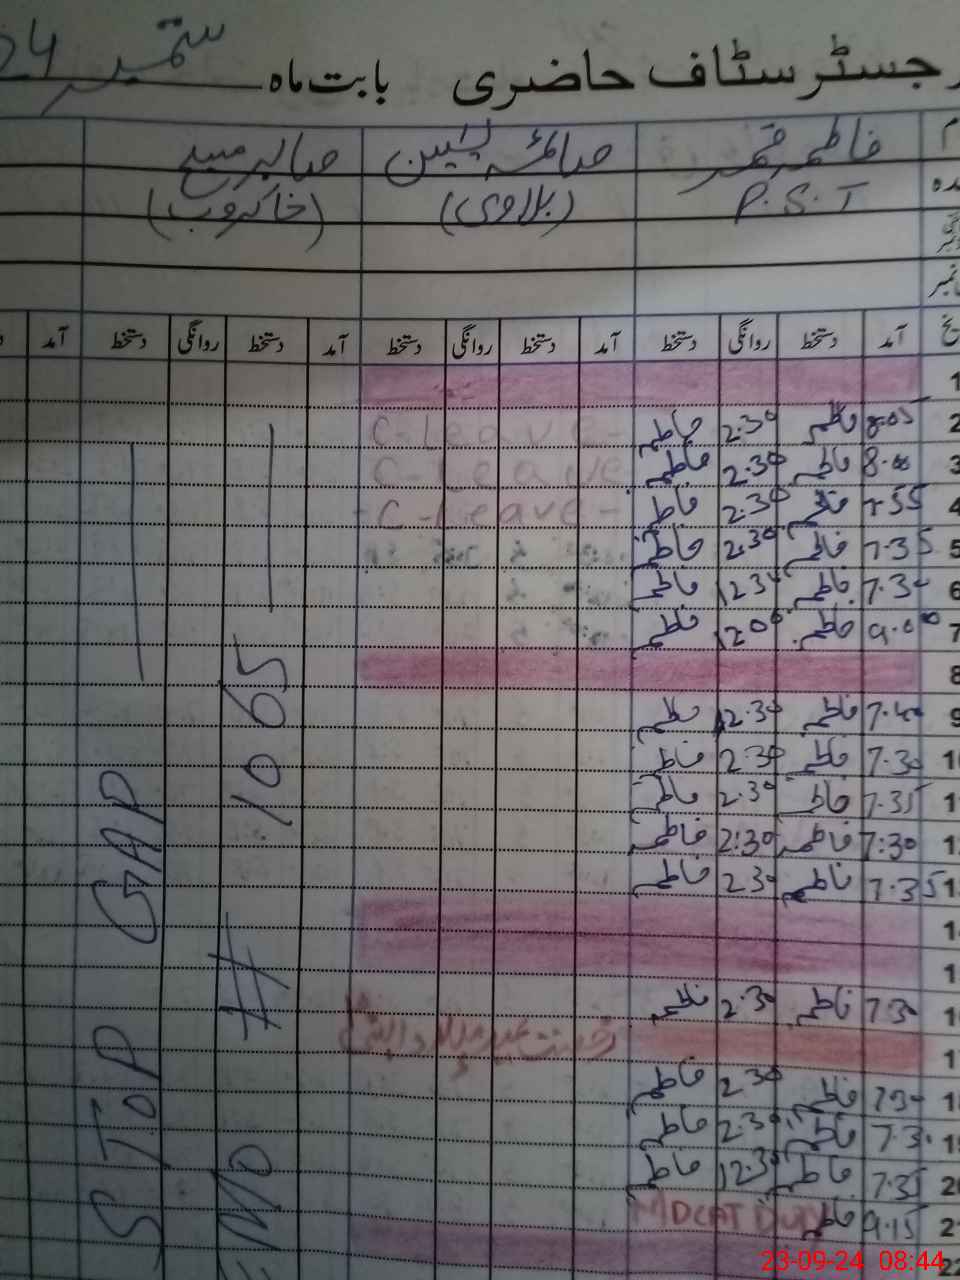 رجسٹر سٹاف حاضری بابت ماہ ستمبر 24
فاطمہ قمر صائمہ یٰسین صابر مسیح
P.S.T (بلاوی) (خاکروب)
آمد دستخط روانگی دستخط آمد دستخط روانگی دستخط آمد دستخط روانگی دستخط آمد
1
2 8:05 فاطمہ 2:30 فاطمہ C-Leave-
3 8.00 فاطمہ 2:30 فاطمہ C-Leave
4 7.55 فاطمہ 2:30 فاطمہ -C-Leave-
5 7.35 فاطمہ 2:30 فاطمہ
6 7.30 فاطمہ 1230 فاطمہ
7 9.00 فاطمہ 1200 فاطمہ
8
9 7.40 فاطمہ 2.30 فاطمہ
7.30 فاطمہ 2.30 فاطمہ
7.35 فاطمہ 2.30 فاطمہ
7:30 فاطمہ 2:30 فاطمہ
7.35 فاطمہ 230 فاطمہ
7.30 فاطمہ 2.30 فاطمہ
7.30 فاطمہ 2.30 فاطمہ
7.30 فاطمہ 2.30 فاطمہ
7.35 فاطمہ 12.30 فاطمہ
9.15 فاطمہ MDCAT Duty
22
# 1065
STOP GAP
23-09-24 08:44